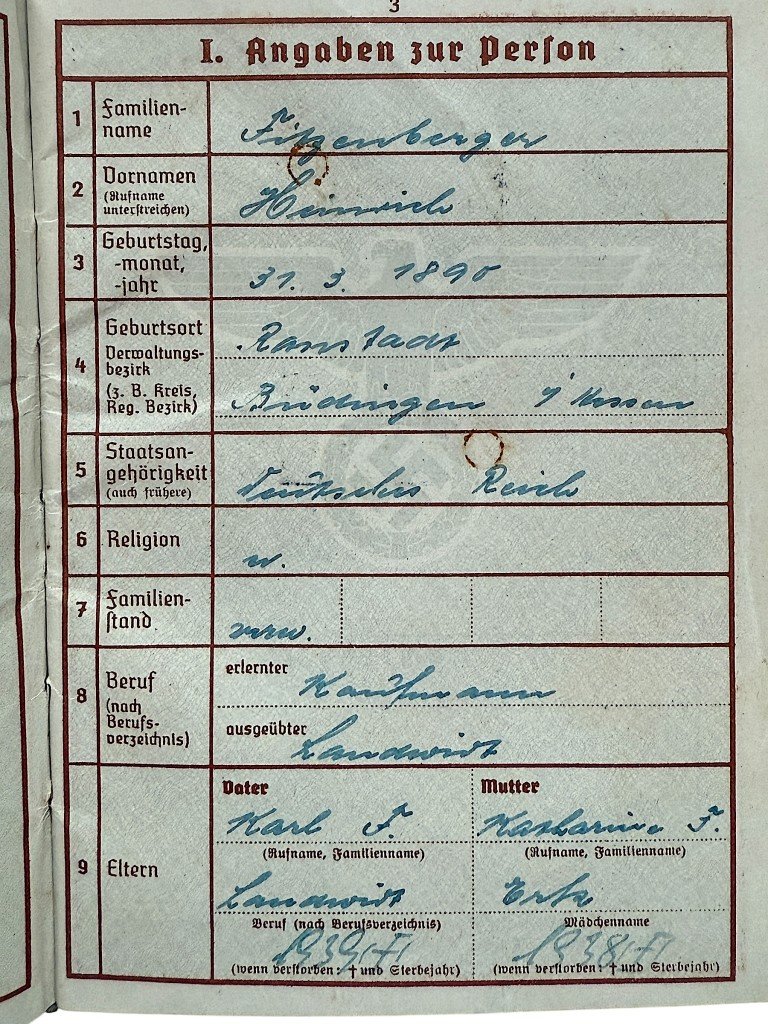 3
I. Angaben zur Person
1 Familien-
name
Fitzenberger
2 Vornamen
(Rufname
unterstreichen)
Heinrich
3 Geburtstag,
-monat,
-jahr
31. 3. 1890
4 Geburtsort
Verwaltungs-
bezirk
(z. B. Kreis,
Reg. Bezirk)
Ranstadt
Büdingen i/Hessen
5 Staatsan-
gehörigkeit
(auch frühere)
Deutsches Reich
6 Religion
7 Familien-
stand
verw.
8 Beruf
(nach
Berufs-
verzeichnis)
erlernter
Kaufmann
ausgeübter
Landwirt
9 Eltern
Vater Mutter
Karl F. Katharina F.
(Rufname, Familienname) (Rufname, Familienname)
Landwirt
Beruf (nach Berufsverzeichnis) Mädchenname
1939 1938
(wenn verstorben: † und Sterbejahr) (wenn verstorben: † und Sterbejahr)